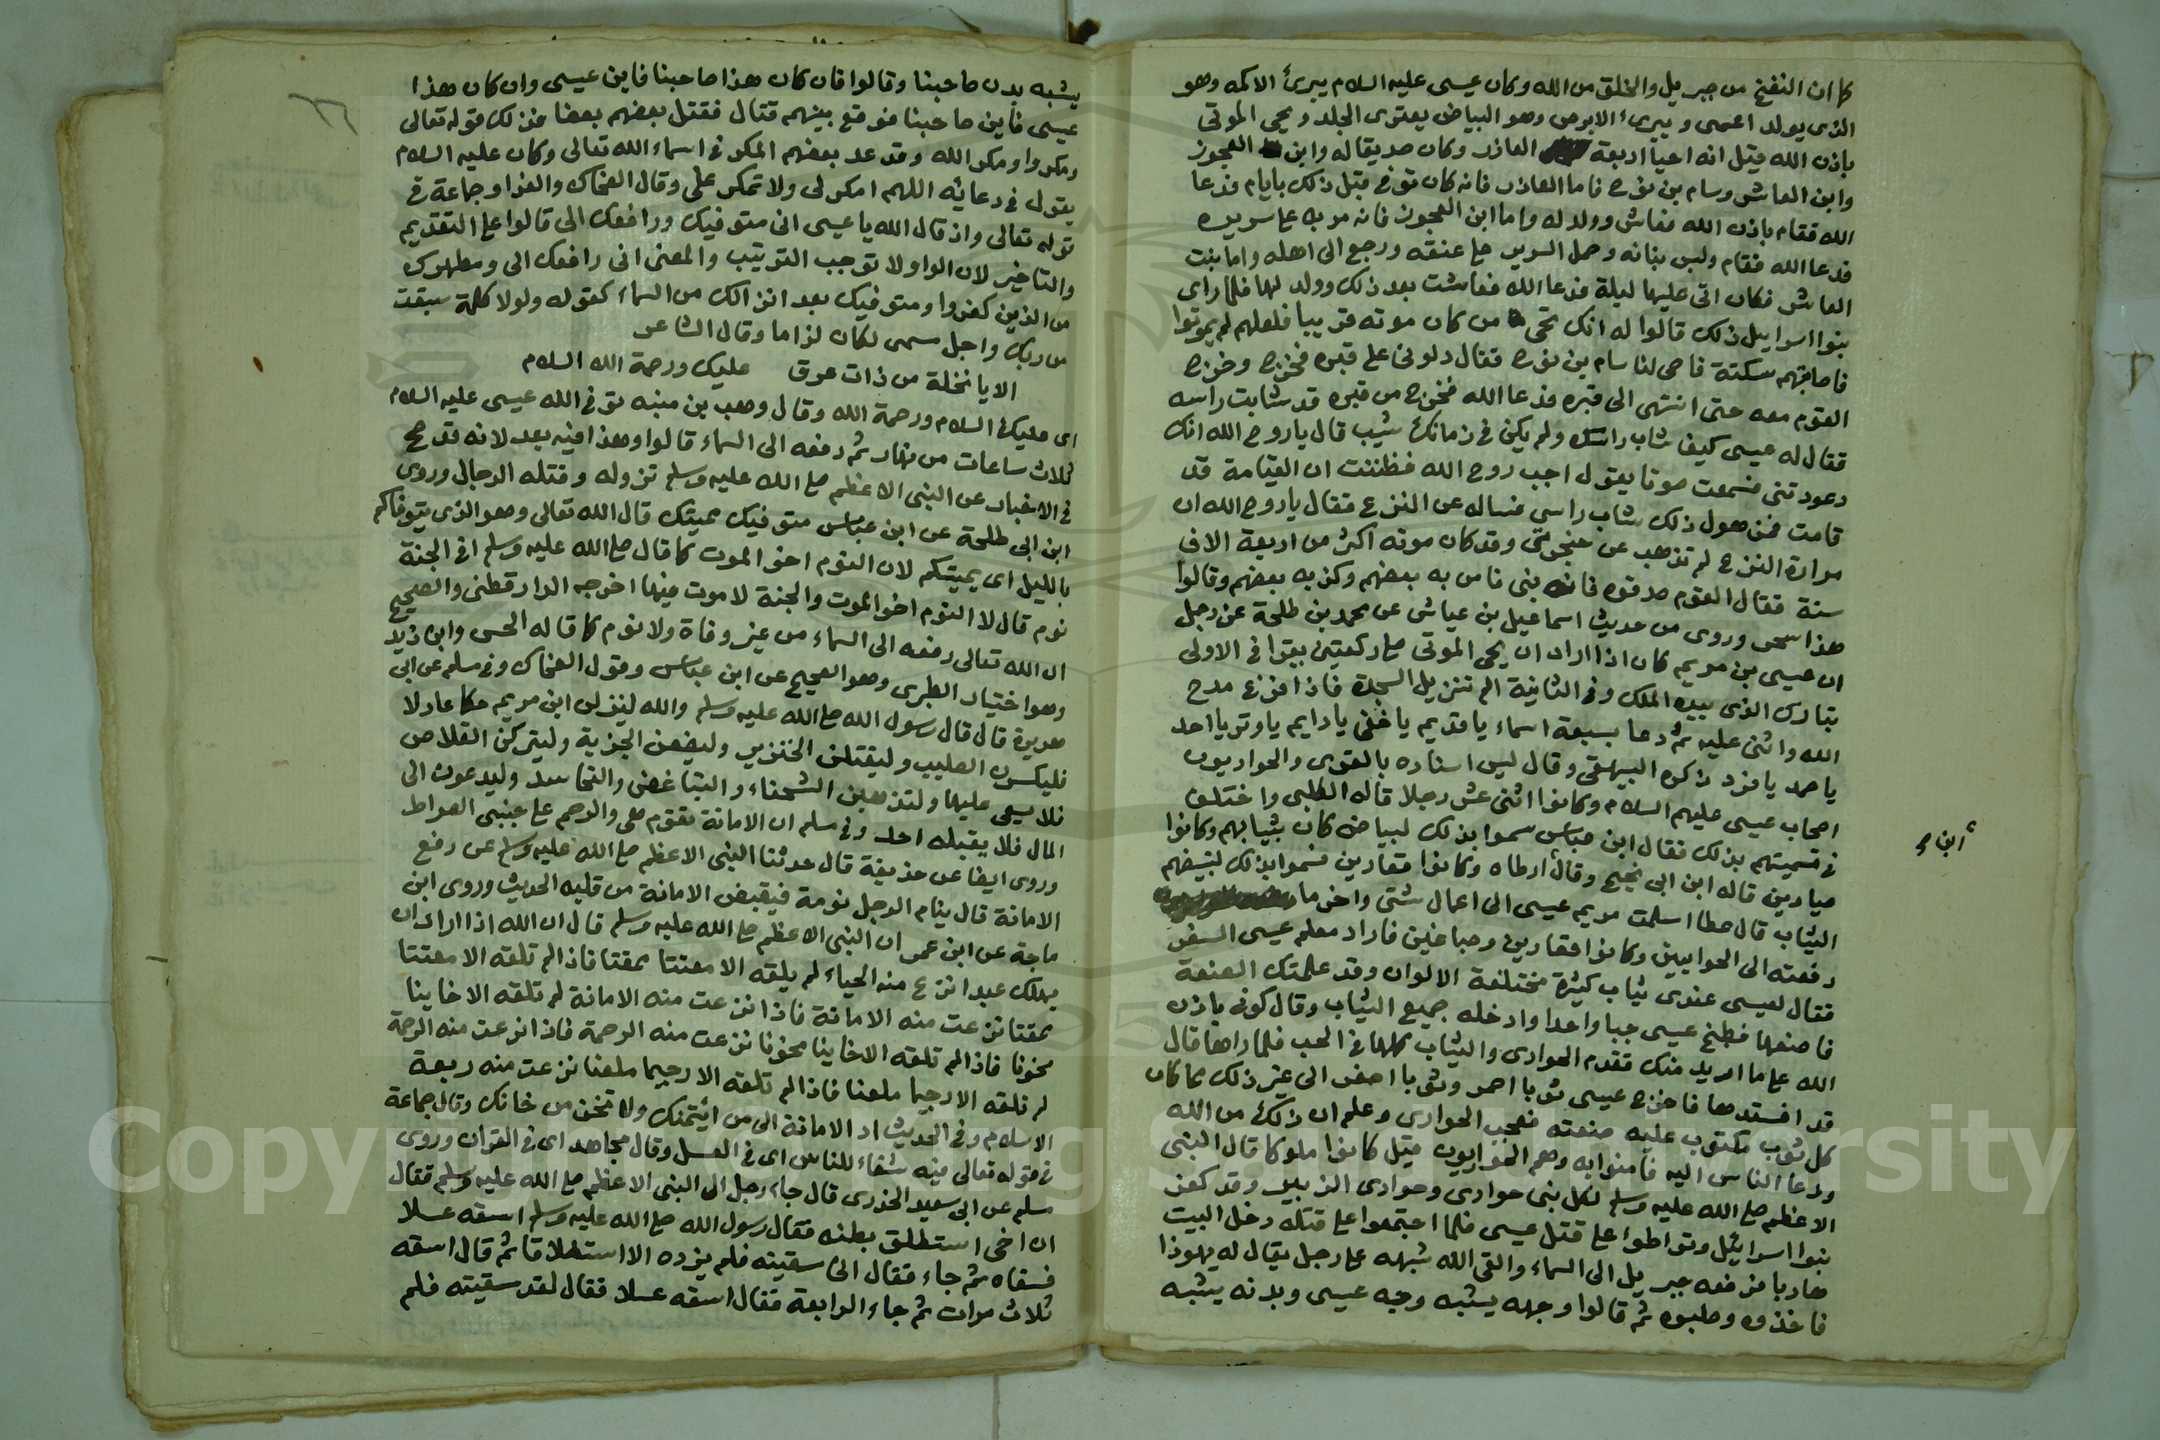 كما ان النفخ من جبريل والخلق من الله وكان عيسى عليه السلام يبرئ الاكمه وهو
الذي يولد اعمى ويبرئ الابرص وهو البياض يعتري الجلد ويحيي الموتى
باذن الله قيل انه احيا اربعة العازر وكان صديقا له وابن العجوز
وابن العاشر وسام بن نوح فاما العازر فانه كان توفي قبل ذلك بايام فدعا
الله فقام باذن الله فعاش وولد له واما ابن العجوز فانه مر به على سريره
فدعا الله فقام ولبس ثيابه وحمل السرير على عنقه ورجع الى اهله واما بنت
العاشر فكان اتى عليها ليلة فدعا الله فعاشت بعد ذلك وولد لها فلما راى
بنوا اسراييل ذلك قالوا له انك تحيي من كان موته قريبا فلعلهم لم يموتوا
فاصابتهم سكتة فاحي لنا سام بن نوح فقال دلوني على قبره فخرج وخرج
القوم معه حتى انتهى الى قبره فدعا الله فخرج من قبره قد شابت راسه
فقال له عيسى كيف شاب راسك ولم يكن في زمانك شيب قال يا روح الله انك
دعوتني فسمعت صوتا يقول اجب روح الله فظننت ان القيامة قد
قامت فمن هول ذلك شاب راسي فساله عن النزع فقال يا روح الله ان
مرارة النزع لم تذهب عن حنجرتي وقد كان موته اكثر من اربعة الاف
سنة فقال القوم صدقوه فانه نبي فامن به بعضهم وكذبه بعضهم وقالوا
هذا سحر وروى من حديث اسماعيل بن عياش عن محمد بن طلحة عن رجل
ان عيسى بن مريم كان اذا اراد ان يحيي الموتى صلى ركعتين يقرا في الاولى
تبارك الذي بيده الملك وفي الثانية الم تنزيل السجدة فاذا فرغ مدح
الله واثنى عليه ثم دعا بسبعة اسماء يا قديم يا خفي يا دايم يا وتر يا احد
يا صمد يا فرد ذكره البيهقي وقال ليس اسناده بالقوي والحواريون
اصحاب عيسى عليهم السلام وكانوا اثنى عشر رجلا قاله الكلبي واختلف
في تسميتهم بذلك فقال ابن عباس سموا بذلك لبياض كان بثيابهم وكانوا
صيادين قاله ابن ابي نجيح وقال أرطاه وكانوا قصارين فسموا بذلك لتبييضهم
الثياب قال عطا اسلمت مريم عيسى الى اعمال شتى واخر ما
دفعته الى الحواريين وكانوا قصارين وصباغين فاراد معلم عيسى السفر
فقال لعيسى عندي ثياب كثيرة مختلفة الالوان وقد علمتك الصنعة
فاصبغها فطبخ عيسى حبا واحدا وادخله جميع الثياب وقال كوني باذن
الله على ما اريد منك فقدم الحواري والثياب كلها في الحب فلما راها قال
قد افسدتها فاخرج عيسى ثوبا احمر وثوبا اصفر الى غير ذلك مما كان
كل ثوب مكتوب عليه صنعته فعجب الحواري وعلم ان ذلك من الله
ودعا الناس اليه فامنوا به وهم الحواريون قيل كانوا ملوكا قال النبي
الاعظم صلى الله عليه وسلم لكل نبي حواري وحواري الزبير وقد كفر
بنوا اسرائيل وتواطوا على قتل عيسى فلما اجتمعوا على قتله دخل البيت
هاربا فرفعه جبريل الى السماء والقى الله شبهه على رجل يقال له يهوذا
فاخذوه وصلبوه ثم قالوا وجهه يشبه وجه عيسى وبدنه يشبه
ابن
يشبه بدن صاحبنا وقالوا فان كان هذا صاحبنا فاين عيسى وان كان هذا
عيسى فاين صاحبنا فوقع بينهم قتال فقتل بعضهم بعضا فذلك قوله تعالى
ومكروا ومكر الله وقد عد بعضهم المكر في اسماء الله تعالى وكان عليه السلام
يقول في دعائه اللهم امكر لي ولا تمكر علي وقال الضحاك والفرا وجماعة في
قوله تعالى واذ قال الله يا عيسى اني متوفيك ورافعك الي قالوا على التقديم
والتاخير لان الواو لا توجب الترتيب والمعنى اني رافعك الي ومطهرك
من الذين كفروا ومتوفيك بعد انزالك من السماء كقوله ولولا كلمة سبقت
من ربك واجل مسمى لكان لزاما وقال الشاعر
الا يا نخلة من ذات عرق عليك ورحمة الله السلام
اي عليك السلام ورحمة الله وقال وهب بن منبه توفي الله عيسى عليه السلام
ثلاث ساعات من نهار ثم رفعه الى السماء قالوا وهذا فيه بعد لانه قد صح
في الاخبار عن النبي الاعظم صلى الله عليه وسلم نزوله وقتله الدجال وروى
ابن ابي طلحة عن ابن عباس متوفيك مميتك قال الله تعالى وهو الذي يتوفاكم
بالليل اي يميتكم لان النوم اخو الموت كما قال صلى الله عليه وسلم افي الجنة
نوم قال لا النوم اخو الموت والجنة لا موت فيها اخرجه الدارقطني والصحيح
ان الله تعالى رفعه الى السماء من غير وفاة ولا نوم كما قاله الحسن وابن زيد
وهو اختيار الطبري وهو الصحيح عن ابن عباس وقول الضحاك وفي مسلم عن ابي
هريرة قال قال رسول الله صلى الله عليه وسلم والله لينزلن ابن مريم حكما عادلا
فليكسرن الصليب وليقتلن الخنزير وليضعن الجزية وليتركن القلاص
فلا يسعى عليها ولتذهبن الشحناء والتباغض والتحاسد وليدعون الى
المال فلا يقبله احد وفي مسلم ان الامانة تقوم هي والرحم على جنبتي الصراط
وروى ايضا عن حذيفة قال حدثنا النبي الاعظم صلى الله عليه وسلم عن رفع
الامانة قال ينام الرجل نومة فيقبض الامانة من قلبه الحديث وروى ابن
ماجة عن ابن عمر ان النبي الاعظم صلى الله عليه وسلم قال ان الله اذا اراد ان
يهلك عبدا نزع منه الحياء لم يلقه الا مقتتا ممقتا فاذا لم تلقه الا مقتتا
ممقتا نزعت منه الامانة فاذا نزعت منه الامانة لم تلقه الا خاينا
مخونا فاذا لم تلقه الا خاينا مخونا نزعت منه الرحمة فاذا نزعت منه الرحمة
لم تلقه الا رجيما ملعنا فاذا لم تلقه الا رجيما ملعنا نزعت منه ربعة
الاسلام وفي الحديث اد الامانة الى من ائتمنك ولا تخن من خانك وقال جماعة
في قوله تعالى فيه شفاء للناس اي في العسل وقال مجاهد اي في القران وروى
مسلم عن ابي سعيد الخدري قال جاء رجل الى النبي الاعظم صلى الله عليه وسلم فقال
ان اخي استطلق بطنه فقال رسول الله صلى الله عليه وسلم اسقه عسلا
فسقاه ثم جاء فقال اني سقيته فلم يزده الا استطلاقا ثم قال اسقه
ثلاث مرات ثم جاء الرابعة فقال اسقه عسلا فقال لقد سقيته فلم